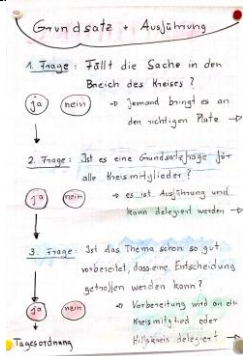 Grundsatz + Ausführung
1. Frage: Fällt die Sache in den
Bereich des Kreises?
ja nein → Jemand bringt es an
den richtigen Platz →
2. Frage: Ist es eine Grundsatzfrage für
alle Kreismitglieder?
ja nein → es ist Ausführung und
kann delegiert werden →
3. Frage: Ist das Thema schon so gut
vorbereitet, dass eine Entscheidung
getroffen werden kann?
ja nein → Vorbereitung wird an ein
Kreismitglied oder
Hilfskreis delegiert →
Tagesordnung